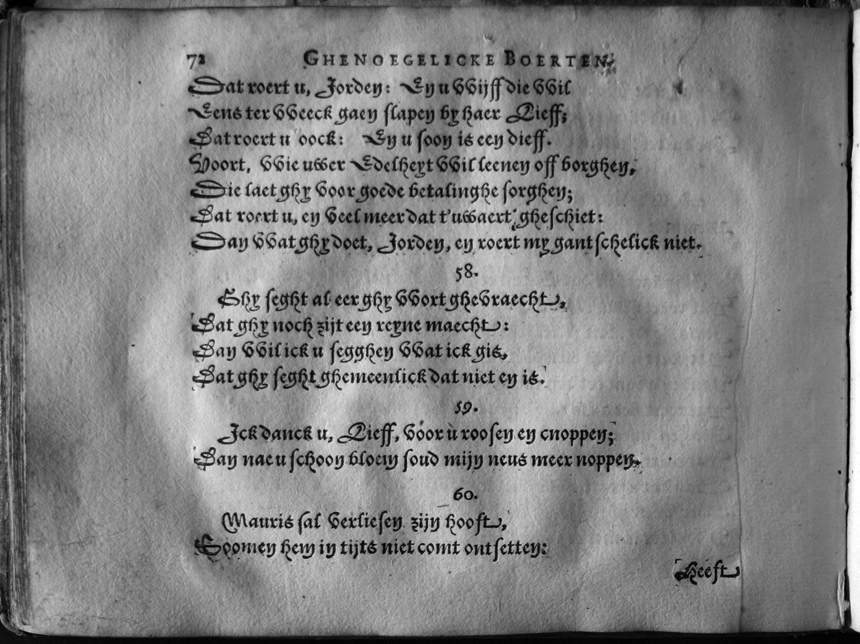 72 GHENOEGELICKE BOERTEN.
Dat roert u, Jorden: En u Wijff die Wil
Eens ter Weeck gaen slapen by haer Lieff;
Dat roert u oock: En u soon is een dieff.
Voort, Wie uwer Edelheyt Wil leenen off borghen,
Die laet ghy voor goede betalinghe sorghen;
Dat roert u, en veel meer dat t'uwaert gheschiet:
Dan Wat ghy doet, Jorden, en roert my gantschelick niet.
58.
Ghy seght al eer ghy Wort ghevraecht,
Dat ghy noch zijt een reyne maecht:
Dan Wil ick u segghen Wat ick gis,
Dat ghy seght ghemeenlick dat niet en is.
59.
Ick danck u, Lieff, voor u roosen en cnoppen;
Dan nae u schoon bloem soud mijn neus meer noppen.
60.
Mauris sal verliesen zijn hooft,
Soomen hem in tijts niet comt ontsetten:
Heeft